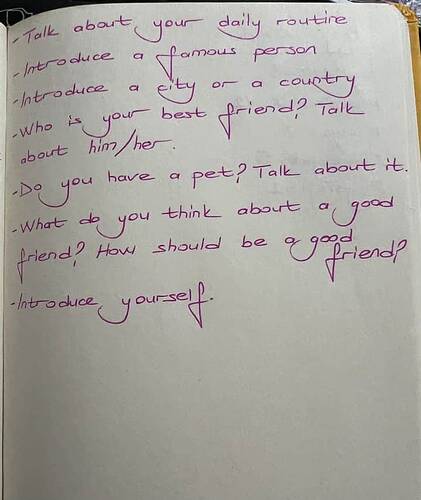 -Talk about your daily routine
-Introduce a famous person
-Introduce a city or a country
-Who is your best friend? Talk
about him/her.
-Do you have a pet? Talk about it.
-What do you think about a good
friend? How should be a good
friend?
-Introduce yourself.